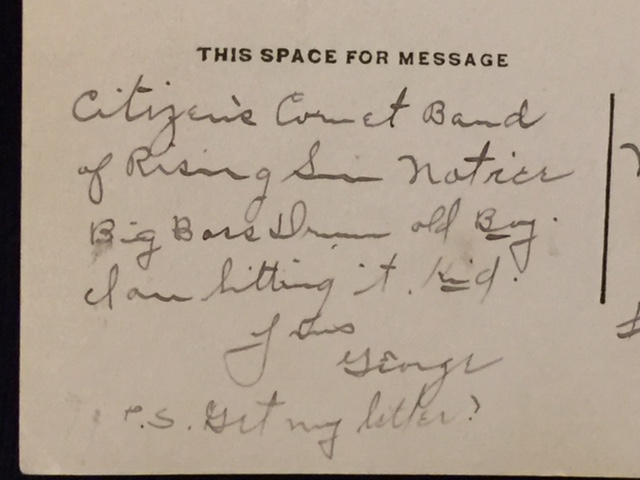 THIS SPACE FOR MESSAGE
Citizen's Cornet Band
of Rising Sun Notice
Big Bass Drum old Boy.
I am hitting it. Kid.
Yours
George
P.S. Get my letter?